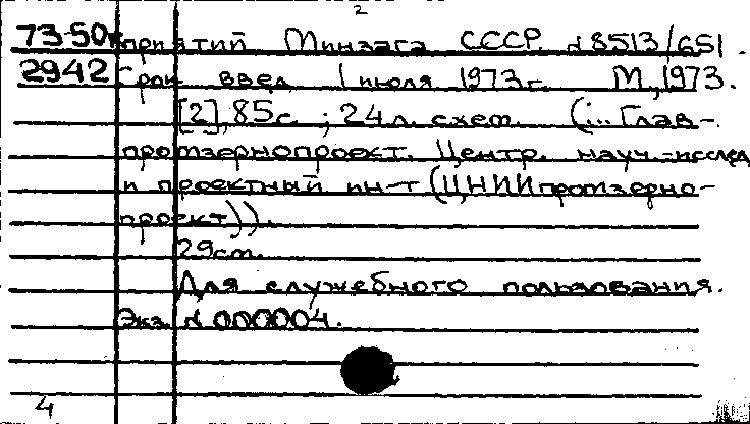 2
73-50к приятий Минзага СССР. N 8513/651.
2942 Срок введ. 1 июля 1973 г. М., 1973.
[2], 85 с.; 24 л. схем. (... Глав-
промзернопроект. Центр. науч.-исслед
и проектный ин-т (ЦНИИпромзерно-
проект)).
29 см.
Для служебного пользования.
Экз. N 000004.
4